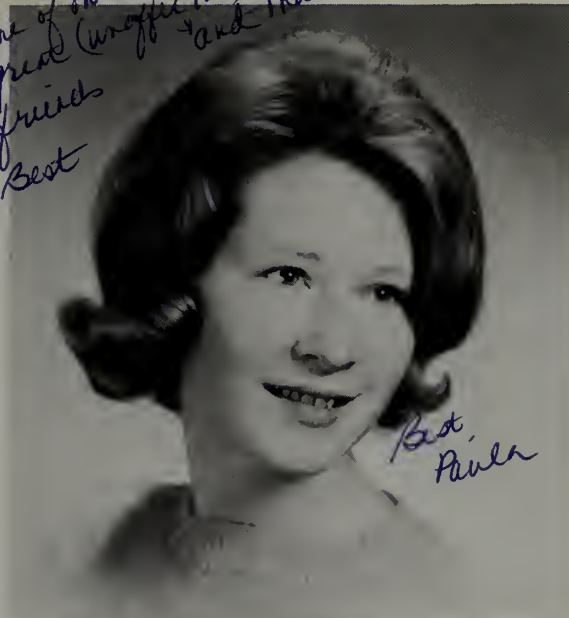 of
great (unoffic
"and
friends
Best
Best,
Paula